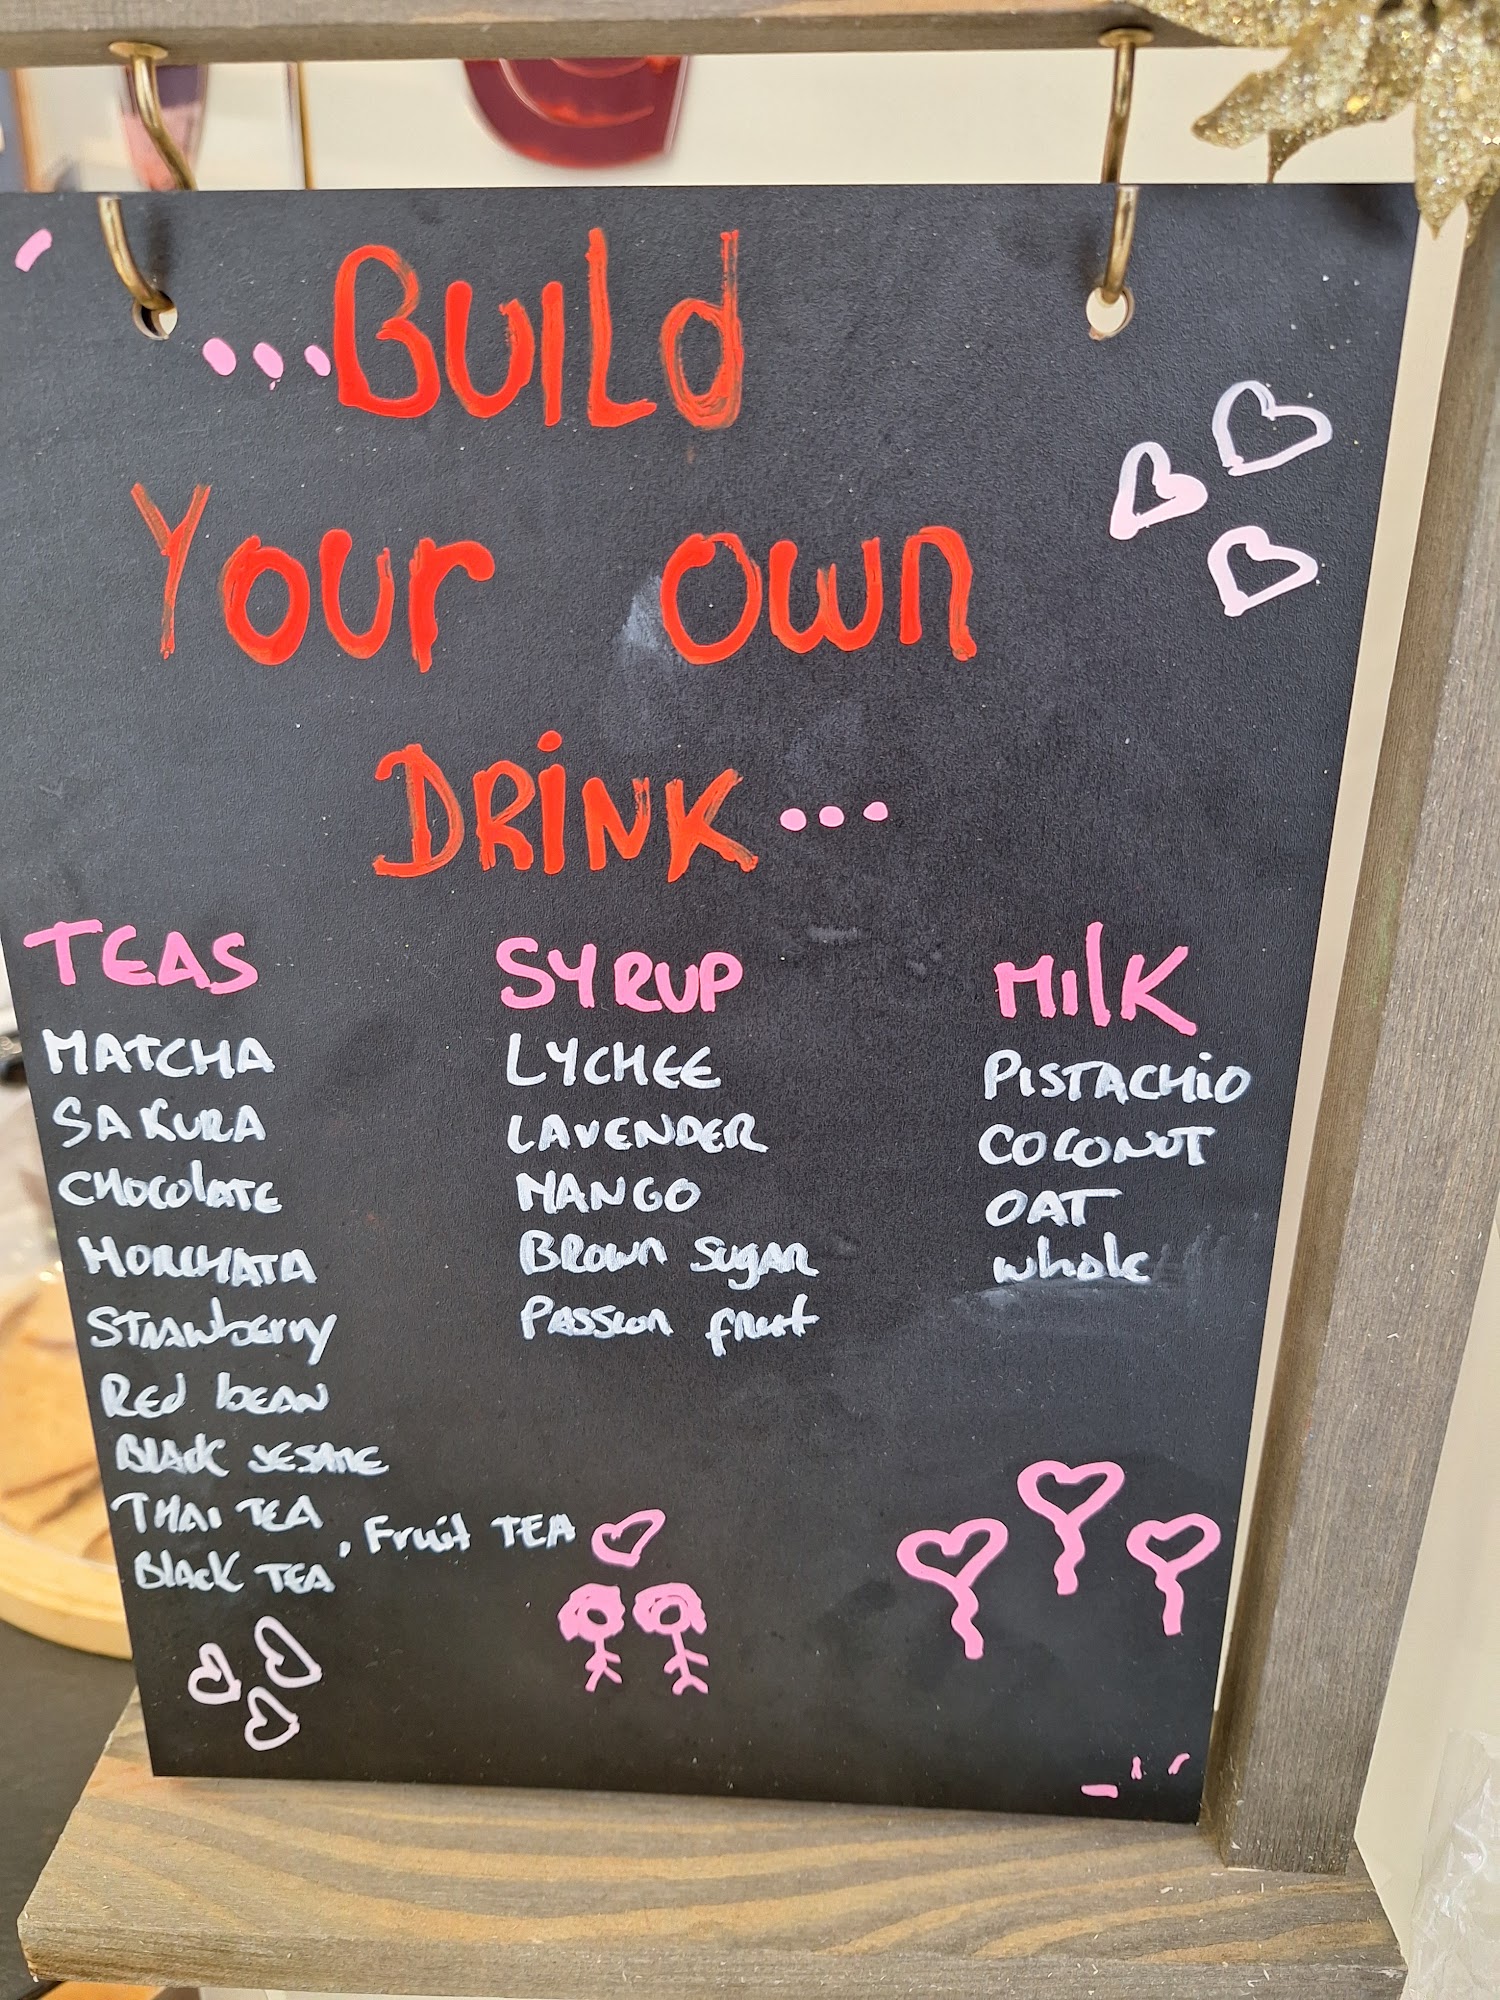 ...Build
Your own
DRiNK...
TEAS
MATCHA
SAKURA
CHOCOLATE
HORCHATA
STRAWberry
Red bEAN
BLACK SESAME
THAI TEA
BlacK TEA, Fruit TEA
SYRUP
LYCHEE
LAVENDER
MANGO
BROWN SUGAR
PASSION fruit
MilK
PISTACHiO
COCONUT
OAT
whole